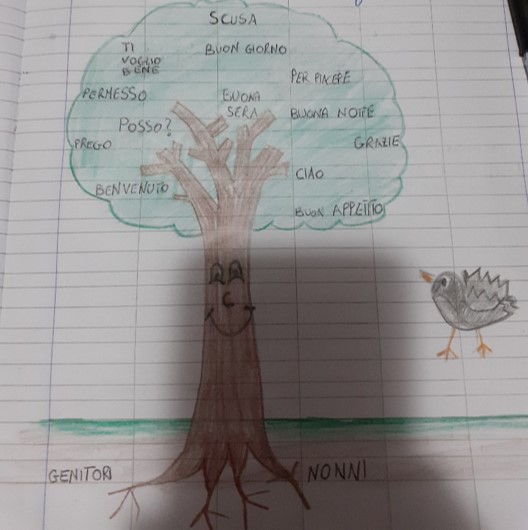 SCUSA
TI
VOGLIO
BENE
BUON GIORNO
PER PIACERE
PERMESSO
BUONA
SERA
BUONA NOTTE
POSSO?
PREGO
GRAZIE
CIAO
BENVENUTO
BUON APPETITO
GENITORI
NONNI